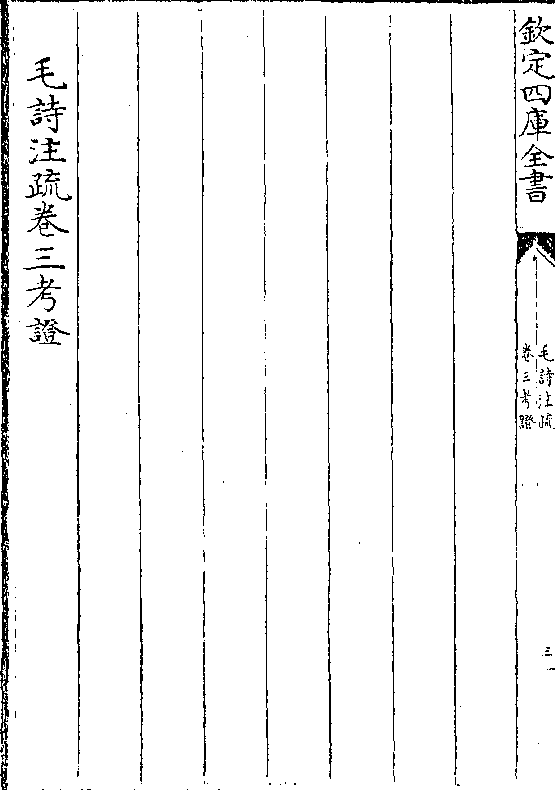 欽定四庫全書
毛詩注疏
卷三考證
三
毛詩注疏卷三考證